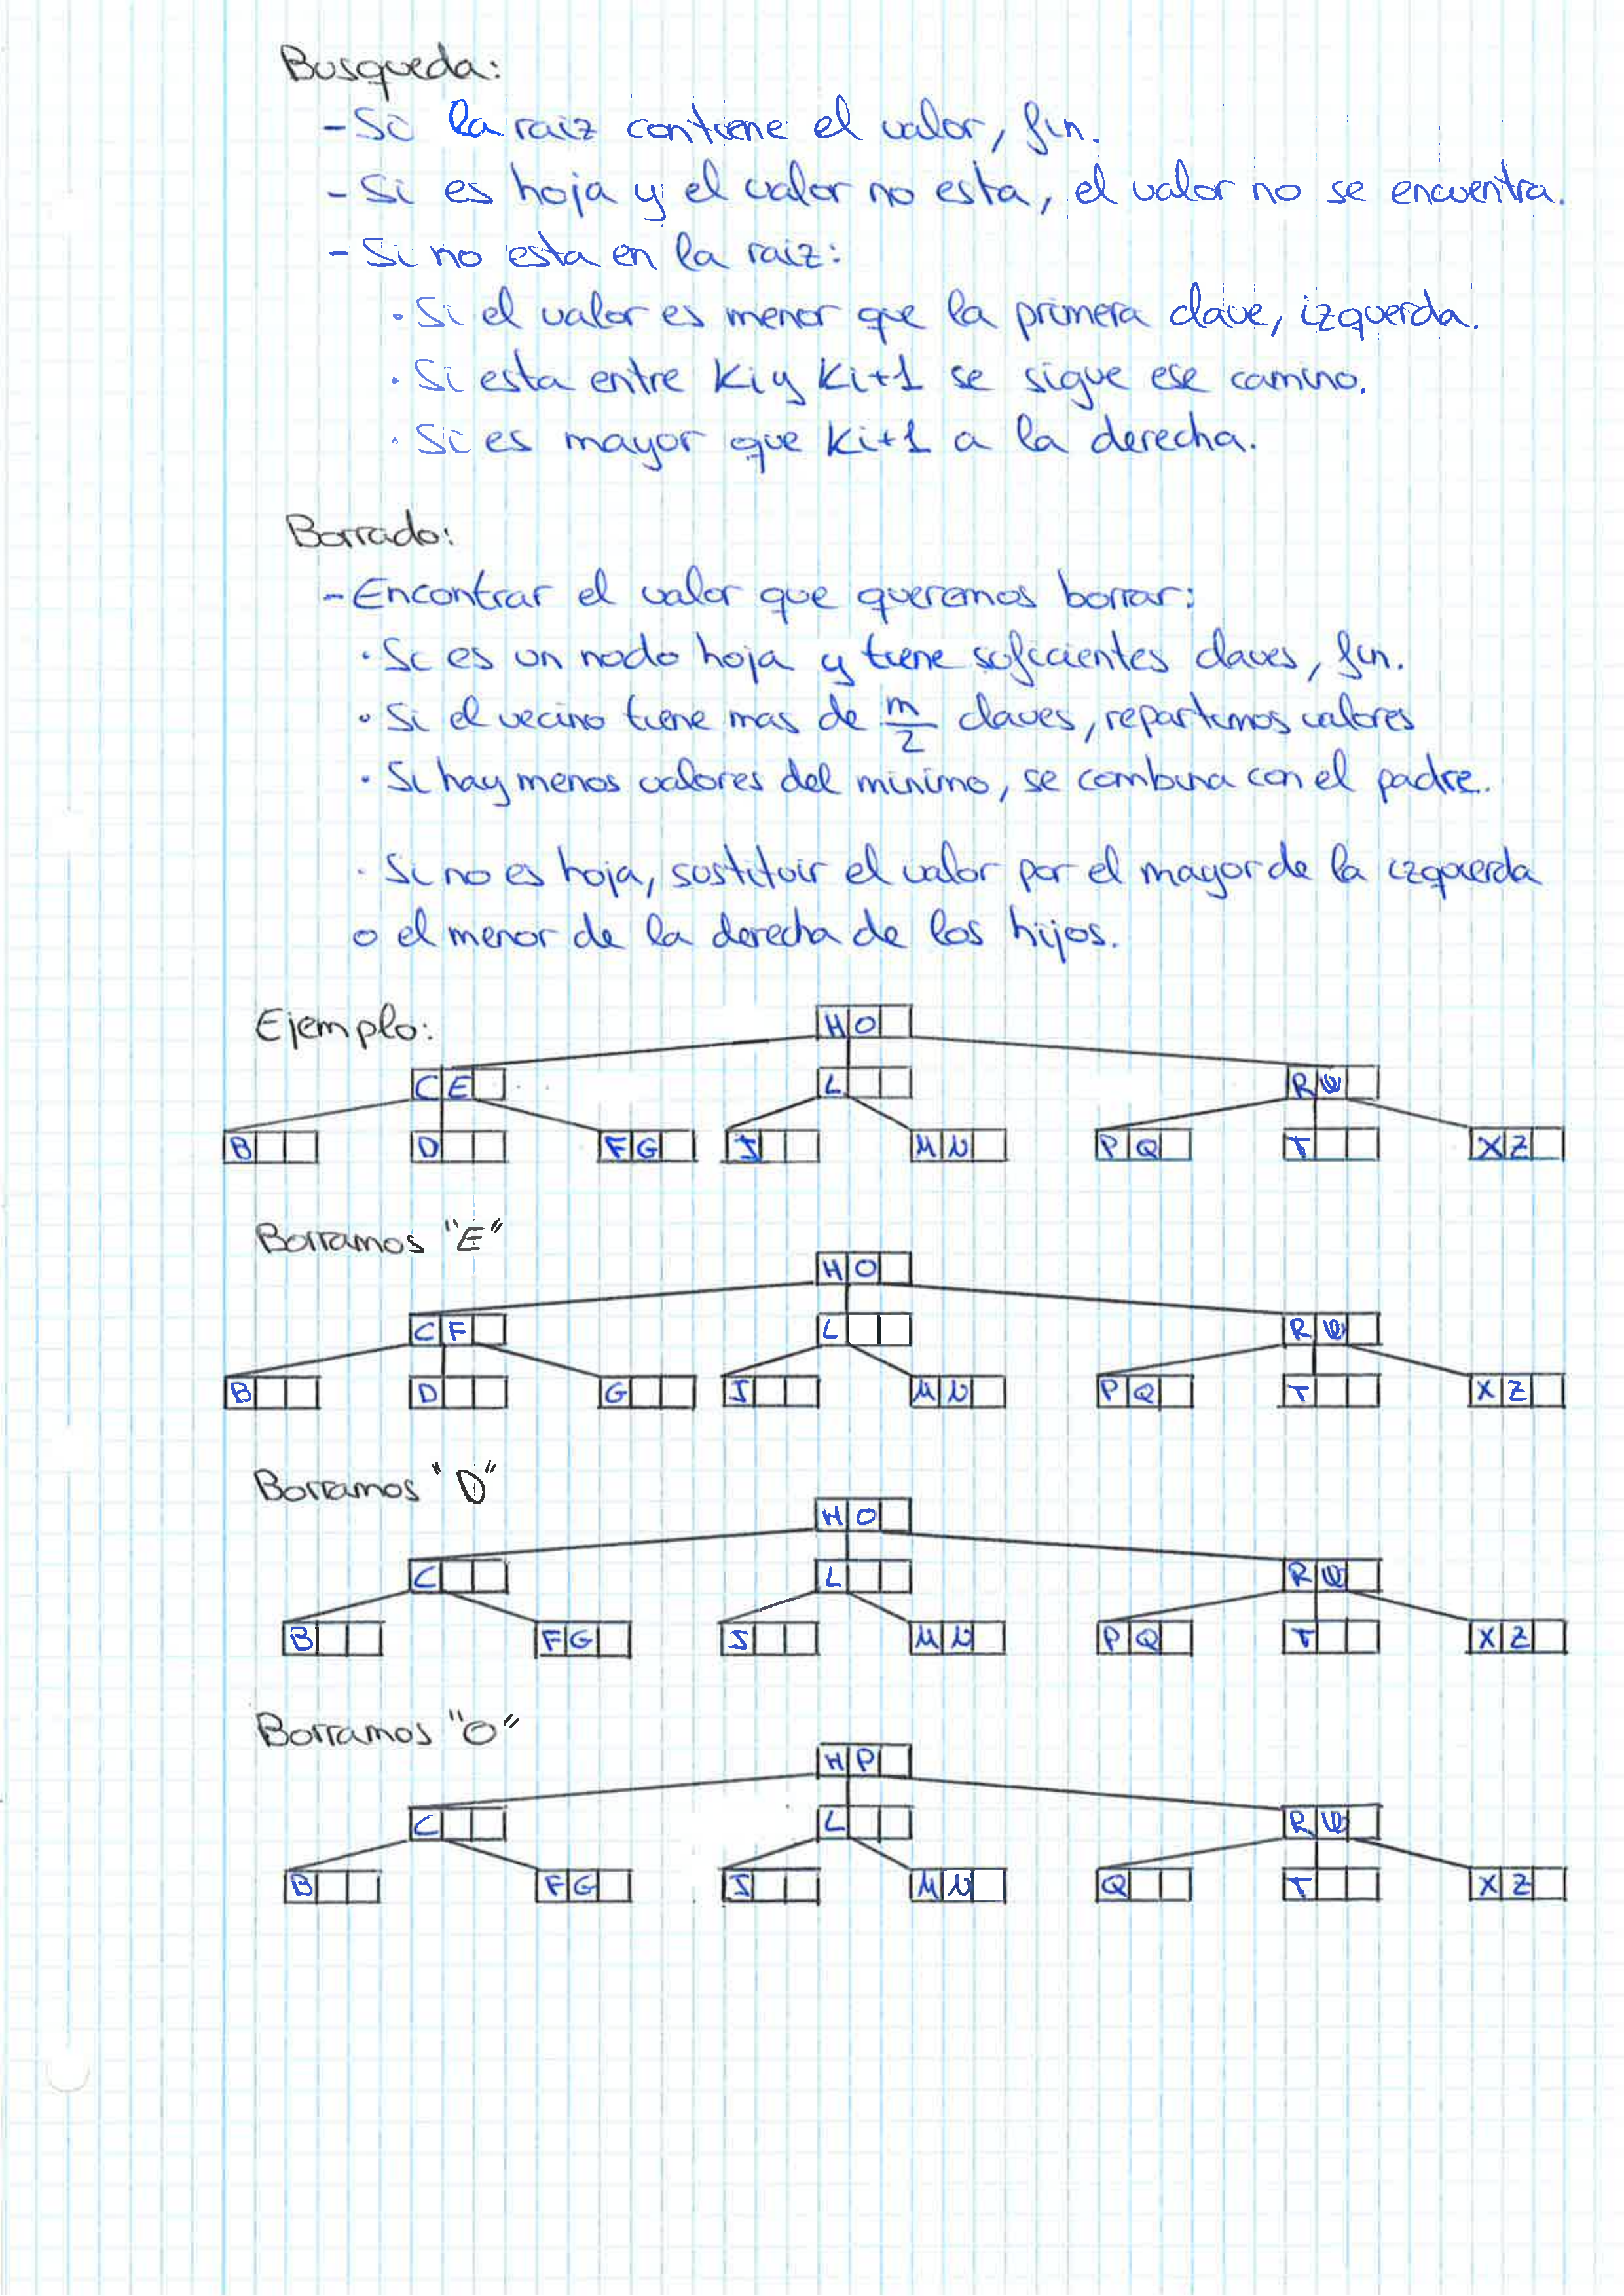 Busqueda:
- Si la raiz contiene el valor, fin.
- Si es hoja y el valor no esta, el valor no se encuentra.
- Si no esta en la raiz:
· Si el valor es menor que la primera clave, izquerda.
· Si esta entre Ki y Ki+1 se sigue ese camino.
· Si es mayor que Ki+1 a la derecha.
Borrado:
- Encontrar el valor que queremos borrar:
· Si es un nodo hoja y tiene suficientes claves, fin.
· Si el vecino tiene mas de m/2 claves, repartimos valores
· Si hay menos valores del minimo, se combina con el padre.
· Si no es hoja, sustituir el valor por el mayor de la izquierda
o el menor de la derecha de los hijos.
Ejemplo:
H O
C E L R W
B D F G J M N P Q T X Z
Borramos "E"
H O
C F L R W
B D G J M N P Q T X Z
Borramos "D"
H O
C L R W
B F G J M N P Q T X Z
Borramos "O"
H P
C L R W
B F G J M N Q T X Z